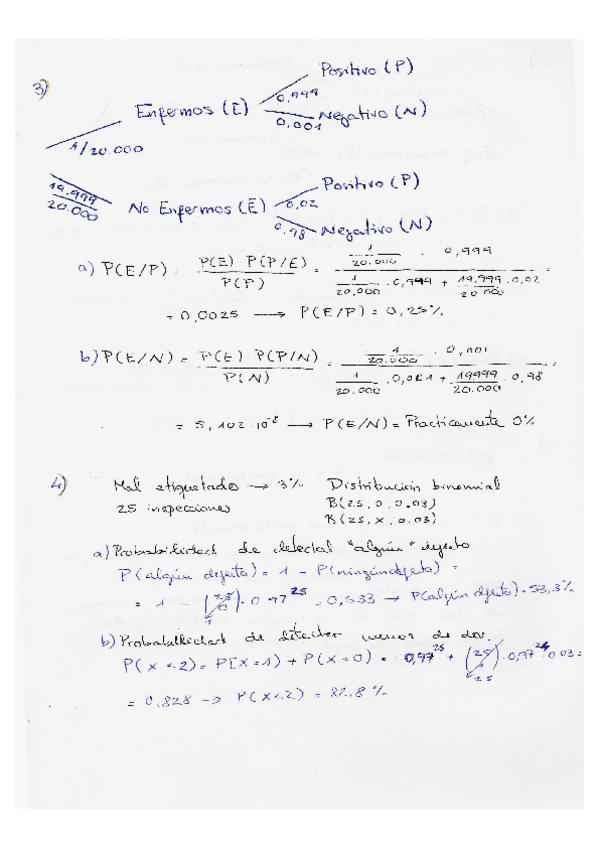 3)
Positivo (P)
0,999
Enfermos (E)
0,001
Negativo (N)
1/20.000
19.999/20.000
Positivo (P)
0,02
No Enfermos (E)
0,98
Negativo (N)
a) P(E/P) = P(E) · P(P/E) / P(P) = 1/20.000 · 0,999 / 1/20.000 · 0,999 + 19.999/20.000 · 0,02 =
= 0,0025 → P(E/P) = 0,25%
b) P(E/N) = P(E) · P(P/N) / P(N) = 1/20.000 · 0,001 / 1/20.000 · 0,001 + 19999/20.000 · 0,98 =
= 5,102·10⁻⁸ → P(E/N) = Practicamente 0%
4) Mal etiquetado → 3% Distribución binomial
25 inspecciones B(25, 0, 0.03)
B(25, x, 0.03)
a) Probabilidad de detectar "algún" defecto
P(algún defecto) = 1 - P(ningún defecto) =
= 1 - (25/0) · 0.97²⁵ = 0,533 → P(algún defecto) = 53,3%
b) Probabilidad de detectar menos de dos.
P(x<2) = P(x=1) + P(x=0) = 0,97²⁵ + (25) · 0,97²⁴ · 0.03 =
25
= 0.828 → P(x<2) = 82.8%